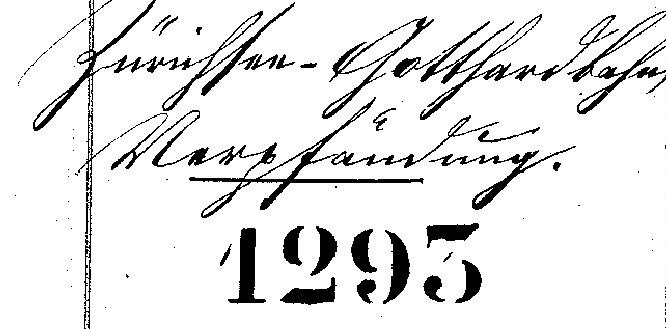 Zürichsee-Gotthardbahn,
Verpfändung.
1293